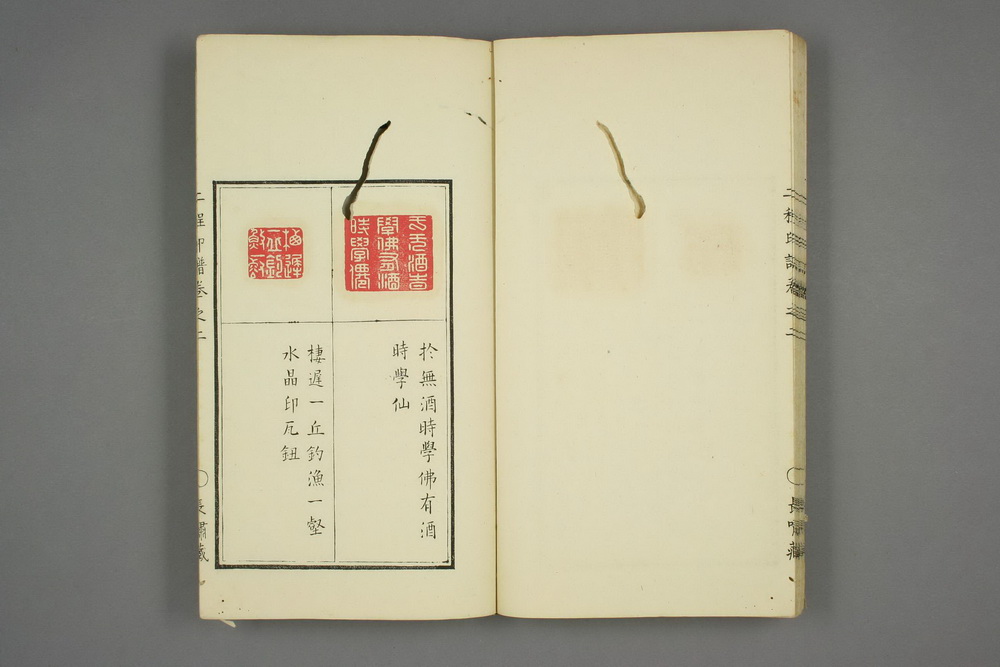 於無酒時學佛有酒
時學仙
棲遲一丘釣漁一壑
水晶印瓦鈕
二程印譜卷之二
長嘯藏
二程印譜卷之二
長嘯藏